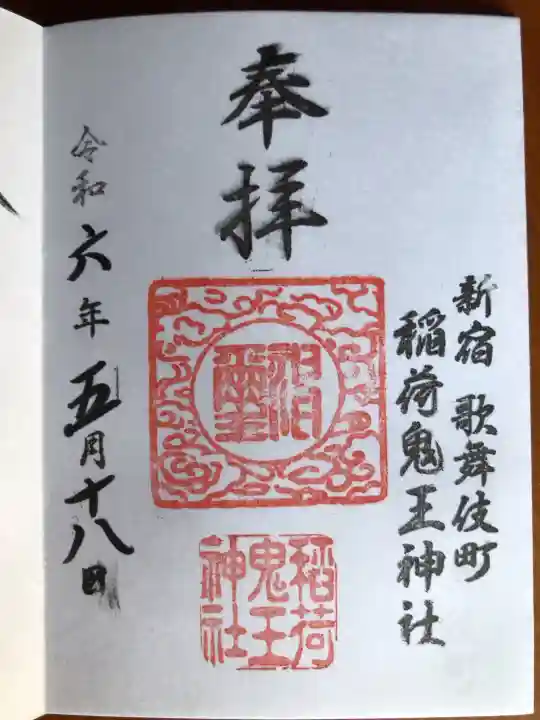 奉拝
新宿 歌舞伎町
稲荷鬼王神社
稲荷
鬼王
神社
令和六年五月十八日